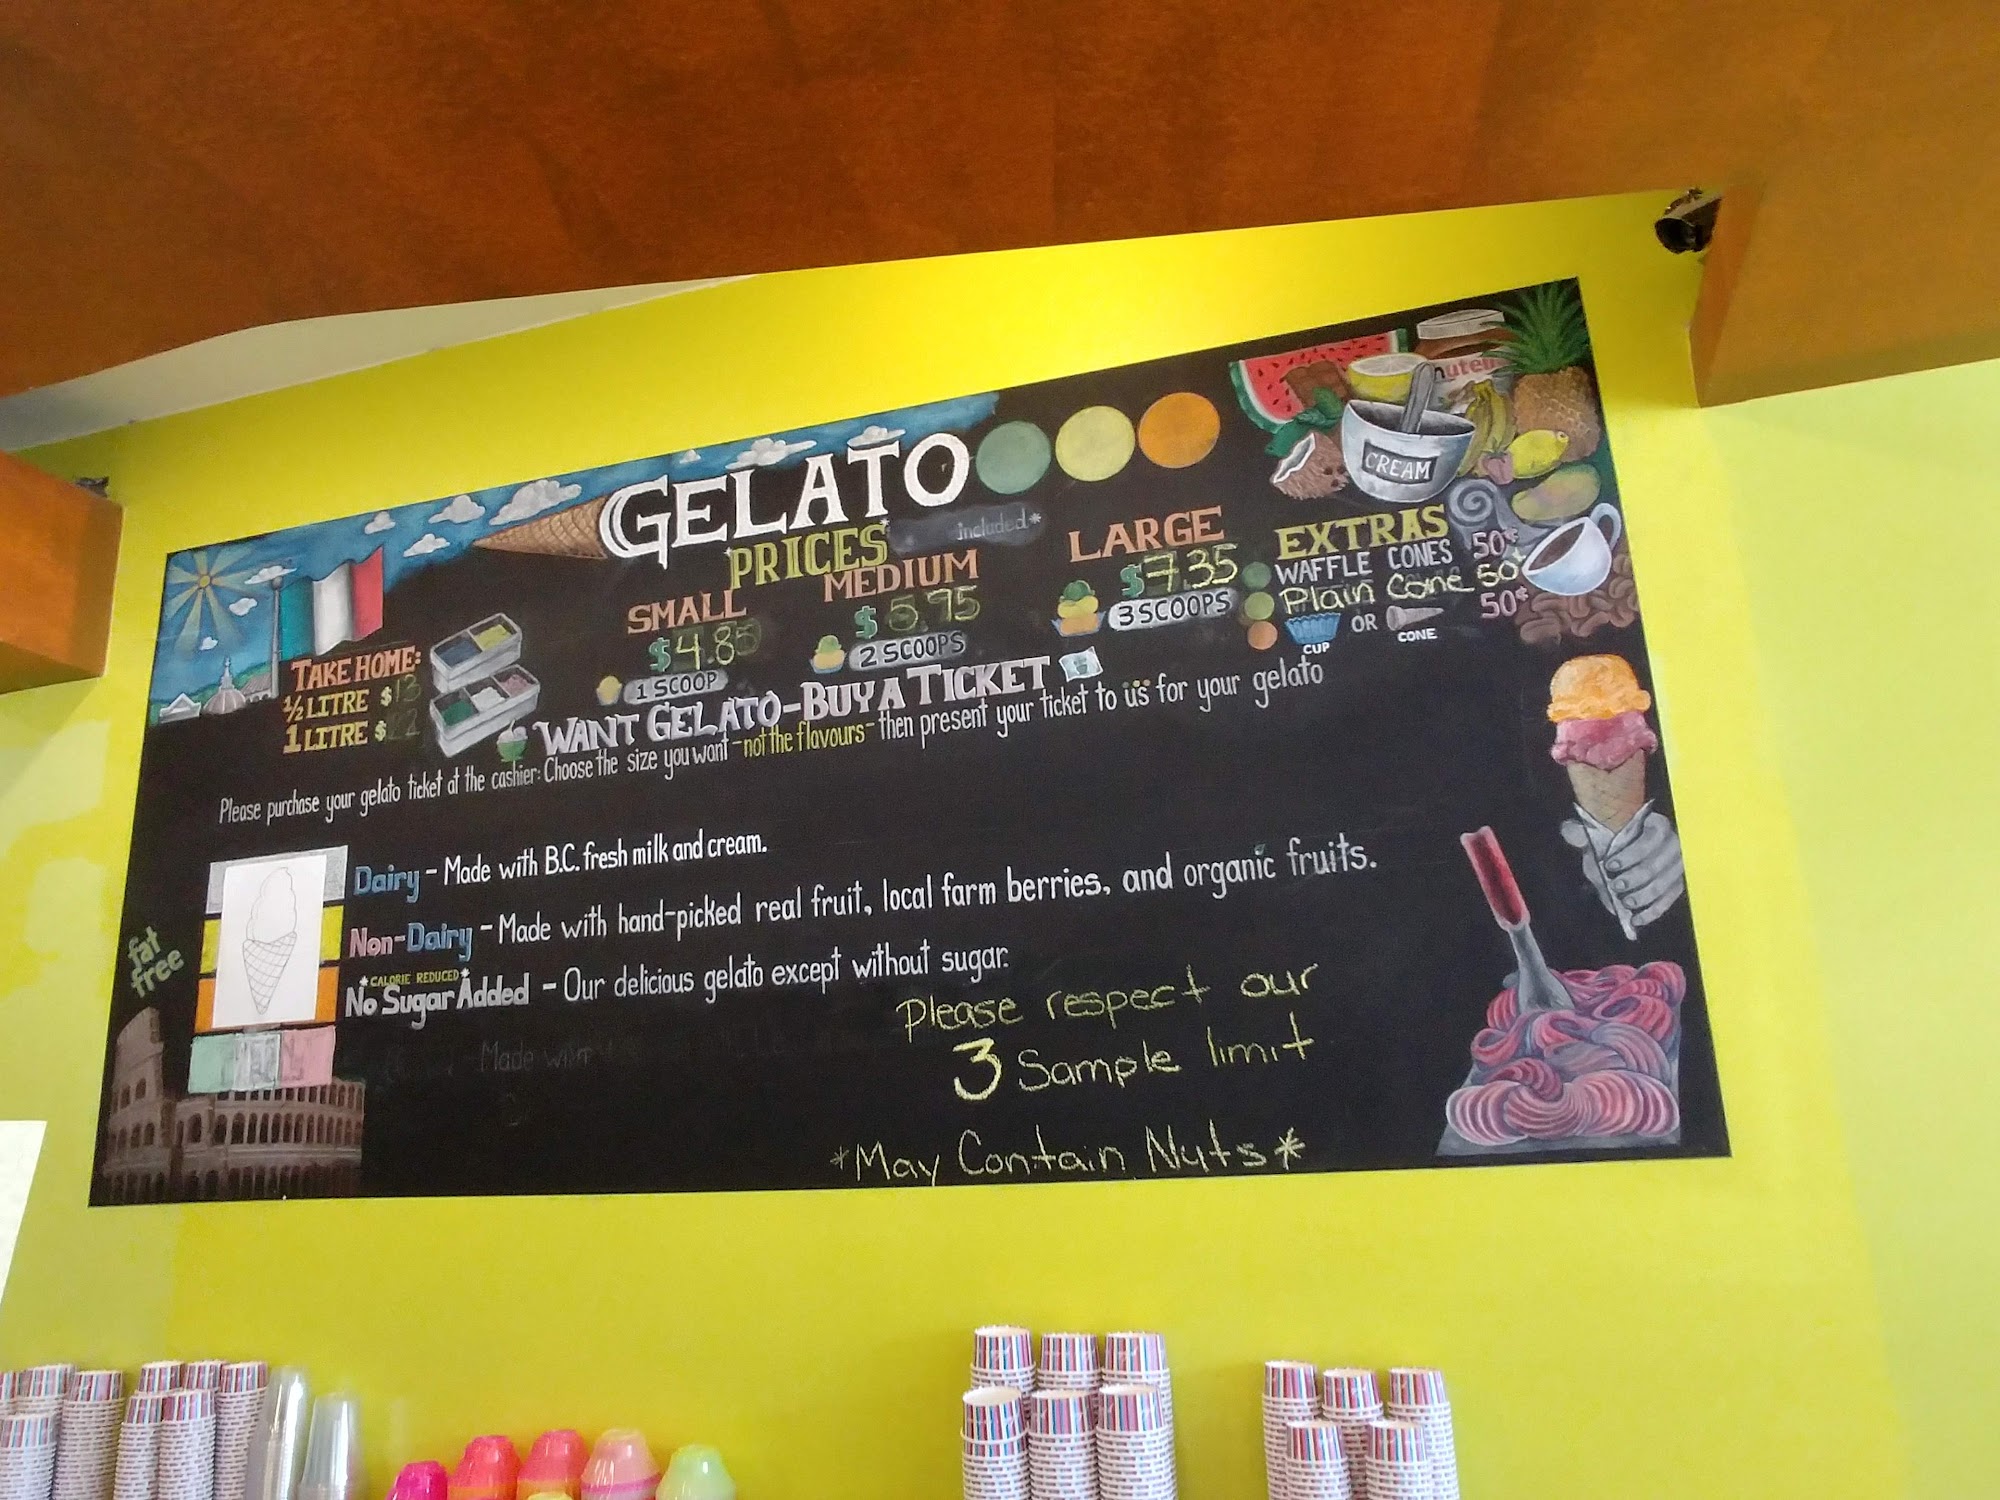 GELATO
PRICES
included*
SMALL
$4.85
1 SCOOP
MEDIUM
$5.75
2 SCOOPS
LARGE
$7.35
3 SCOOPS
EXTRAS
WAFFLE CONES 50¢
Plain Cone 50¢
50¢
CUP OR CONE
CREAM
nutella
TAKE HOME:
½ LITRE $13
1 LITRE $22
WANT GELATO-BUY A TICKET
Please purchase your gelato ticket at the cashier: Choose the size you want -not the flavours- then present your ticket to us for your gelato
Dairy - Made with B.C. fresh milk and cream.
Non-Dairy - Made with hand-picked real fruit, local farm berries, and organic fruits.
*CALORIE REDUCED*
No Sugar Added - Our delicious gelato except without sugar.
fat
free
Made with
Please respect our
3 Sample limit
*May Contain Nuts*